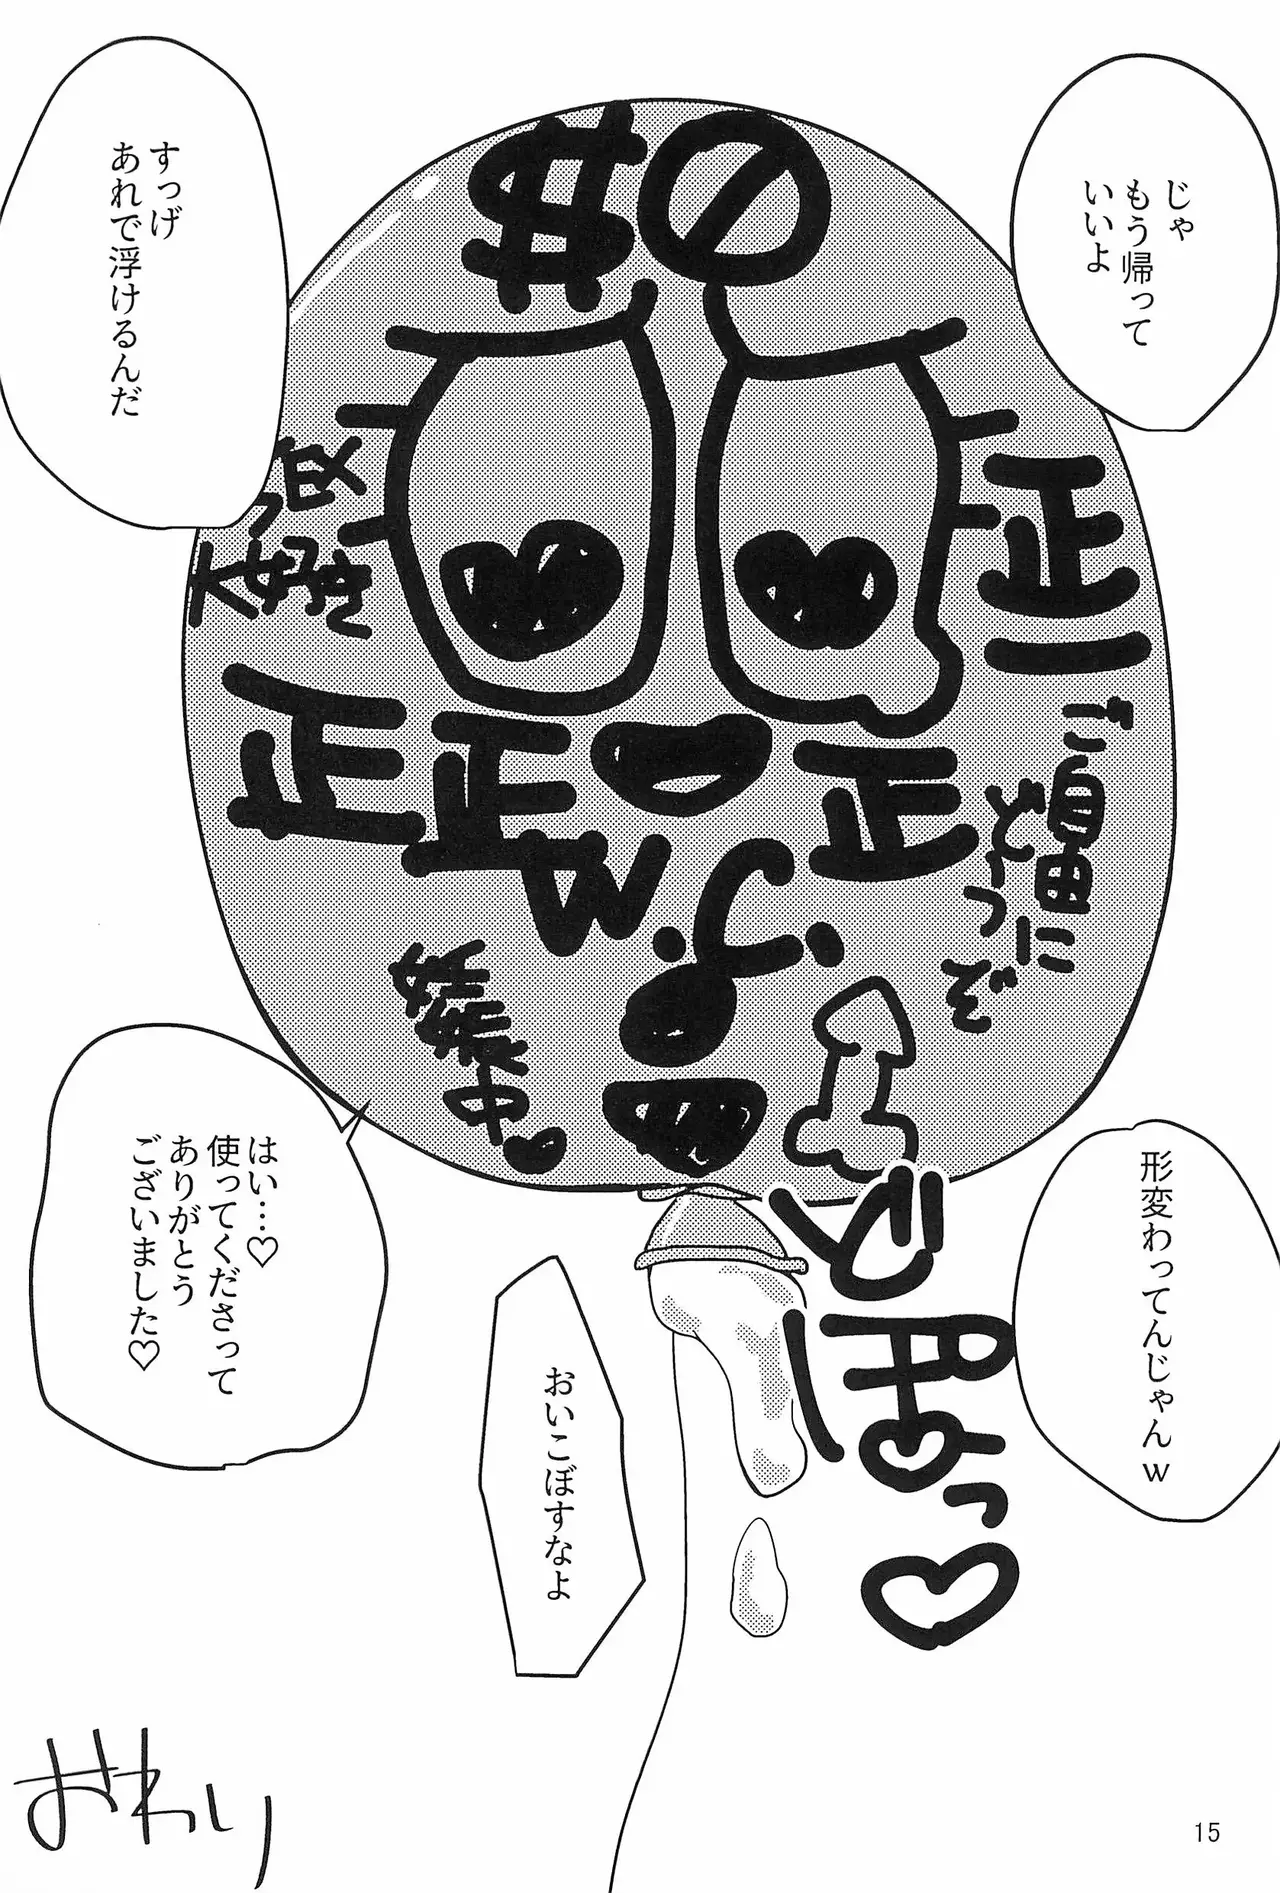 じゃ
もう帰って
いいよ
すっげ
あれで浮けるんだ
$0
大好き
正
正
正
正
二
中
ぞ
w
形変わってんじゃんｗ
はい…♡
使ってくださって
ありがとう
ございました♡
おいこぼすなよ
っ♡
おわり
15